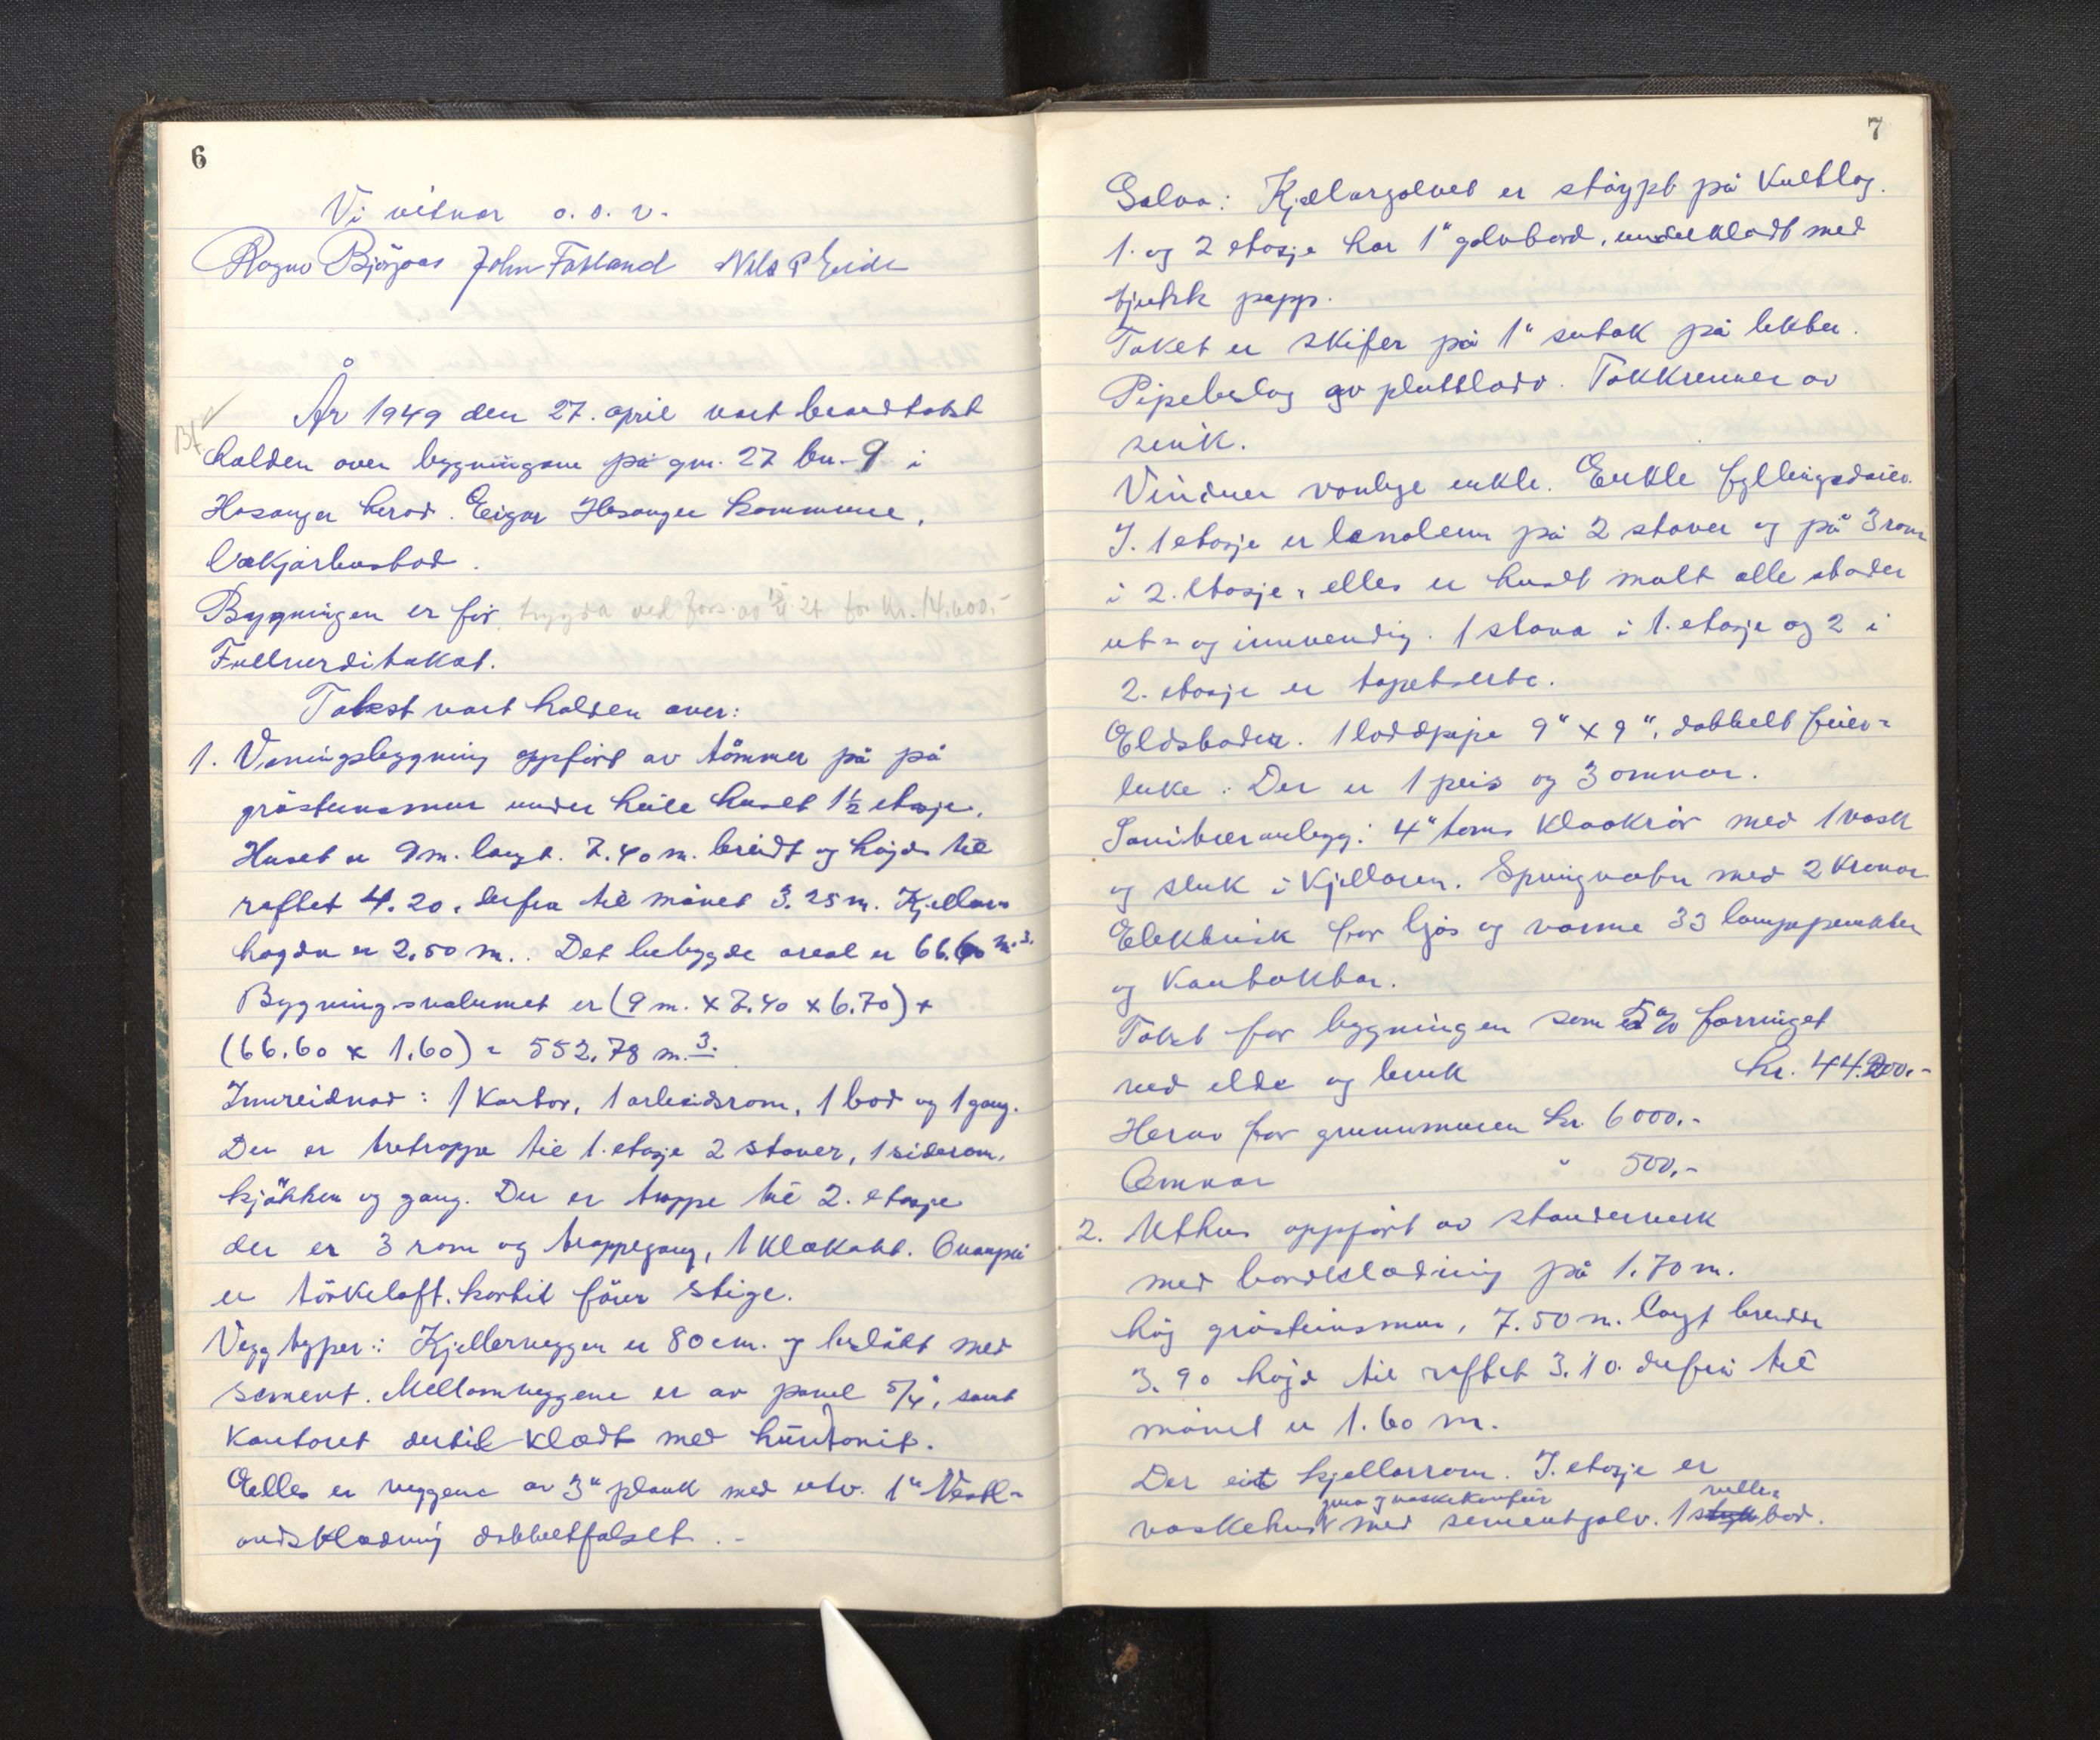 6
Vi vitnar o.s.v.
Ragnv Bjørgaas John Fotland Nils P Eide
År 1949 den 27. april vart brandtakst
Bf.
halden over bygningane på gnr. 27 bn. 9 i
Hosanger herad. Eigar Hosanger kommune,
Bygningen er før trygda ved fors. av 21 for kr. 14.600.-
Fullverditakst.
Takst vart halden over:
1. Våningsbygning oppført av tömmer på på
gråsteinsmur under heile huset 1½ etasje.
Huset er 9 m. langt. 7.40 m. breidt og høgde til
raftet 4.20, derfra til mönet 3.25 m. Kjellar
høgda er 2.50 m.. Det bebygde areal er 66.60 m.3.
Bygningsvolumet er (9 m. x 7.40 x 6.70) +
(66.60 x 1.60) = 552.78 m.3.
Innreidnad: 1 Kontor, 1 arbeidsrom, 1 bod og 1 gang.
Der er tretrappe til 1. etasje 2 stover, 1 siderom,
kjökken og gang. Der er trappe til 2. etasje
der er 3 rom og trappegang, 1 Klekott. Ovanpå
er törkeloft. hortil förer stige.
Veggtyper: Kjellerveggen er 80 cm. og beslått med
sement. Mellomveggene er av panel 5/4", samt
Kontoret dertil klædt med huntonit.
Elles er veggene av 3" plank med utv. 1" Vestl-
andsklædning dobbeltfalset. -
7
Golva: Kjellargolvet er støypt på Kultlag.
1. og 2 etasje har 1" golvbord, underklædt med
tjukk papp.
Taket er skifer på 1" sutak på lekter.
Pipebeslag av plettladv. Takkrenner av
sink.
Vinduer vanlege enkle. Enkle fyllingsdører.
I. 1 etasje er lenoleum på 2 stover og på 3 rom
i 2. etasje, elles er huset malt alle stader
ut- og innvendig. 1 stova i 1. etasje og 2 i
2. etasje er tapetserte.
Eldstader. 1 loddpipe 9" x 9", dobbelt feier-
luke. Der er 1 peis og 3 omnar.
Sanitæranlegg: 4" toms Kloakrör med 1 vask
og sluk i Kjellaren. Springvatn med 2 Kranar
Elektrisk for ljos og varme 33 lampepunkter
og Kontaktar.
Takst for bygningen som er 5% forringet
ved elde og bruk kr. 44.200.-
Herav for grunnmuren kr. 6000.-
Omnar " 500.-
2. Uthus oppført av standerverk
med bordklædning på 1.70 m.
høg gråsteinsmur, 7.50 m. langt breidde
3.90 høgd til raftet 3.10. derfrå til
mönet er 1.60 m.
Der eit kjellarrom. I. etasje er
vaskehus med sementgolv. 1 bod.